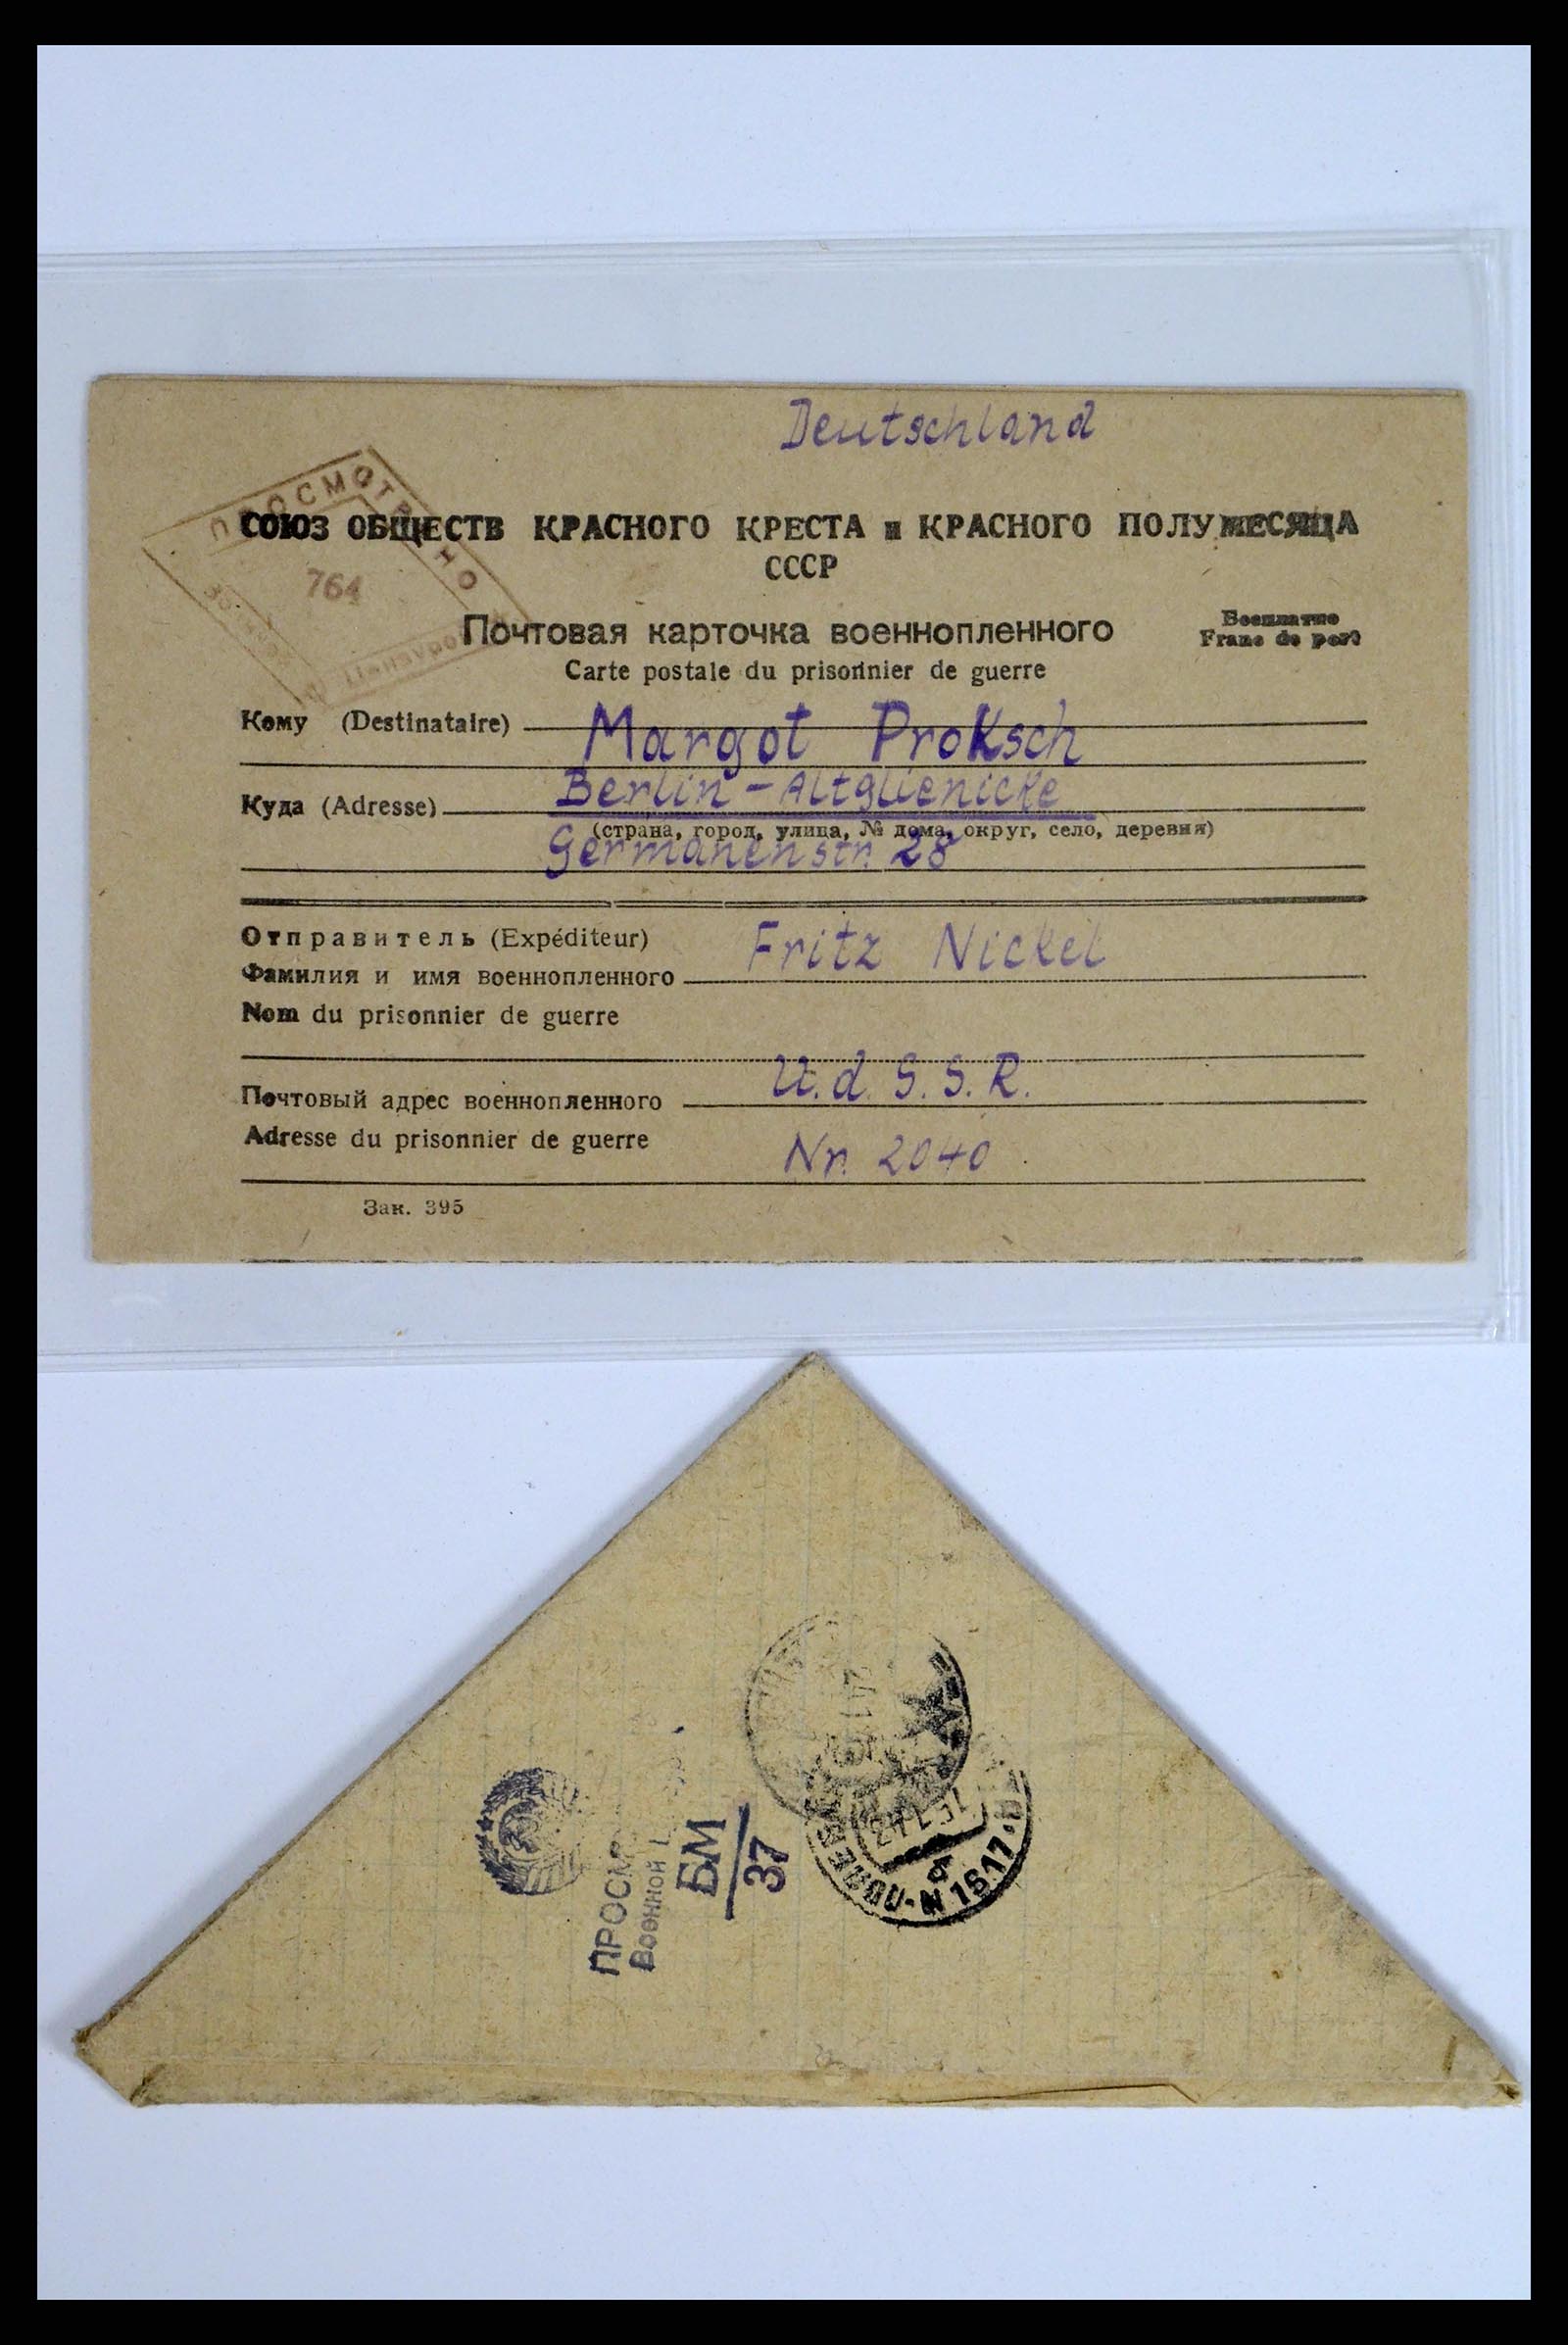 Deutschland
ПРОСМОТРЕНО
764
СОЮЗ ОБЩЕСТВ КРАСНОГО КРЕСТА и КРАСНОГО ПОЛУМЕСЯЦА
СССР
Почтовая карточка военнопленного
Бесплатно
Franc de port
Carte postale du prisonnier de guerre
Кому (Destinataire) Margot Proksch
Куда (Adresse) Berlin-Altglienicke
(страна, город, улица, № дома, округ, село, деревня)
Germanenstr. 28
Отправитель (Expéditeur)
Фамилия и имя военнопленного Fritz Nickel
Nom du prisonnier de guerre
Почтовый адрес военнопленного U.d.S.S.R.
Adresse du prisonnier de guerre Nr. 2040
Зак. 395
ПРОСМ
Военной
БМ
37
№ 1617